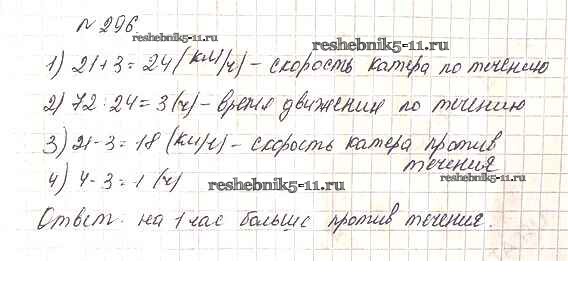 № 296.
reshebnik5-11.ru
reshebnik5-11.ru
1) 21+3=24 (км/ч) - скорость катера по течению
2) 72:24=3 (ч) - время движения по течению
3) 21-3=18 (км/ч) - скорость катера против
течения
4) 4-3=1 (ч)
reshebnik5-11.ru
reshebnik5-11.ru
Ответ: на 1 час больше против течения.